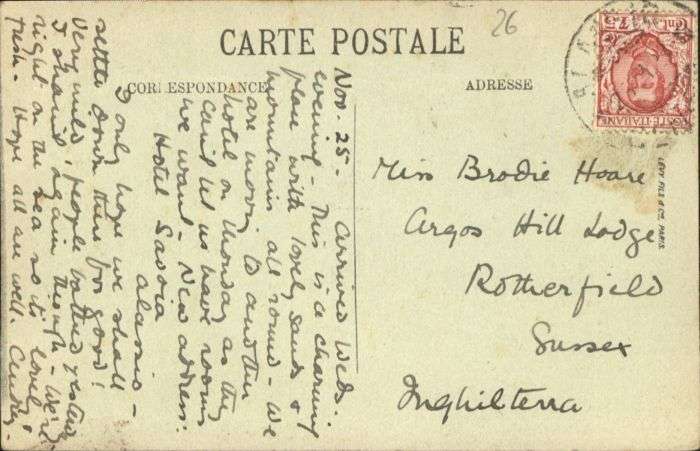 26
CARTE POSTALE
CORRESPONDANCE
ADRESSE
Nov. 25. Arrived Weds.
evening - This is a charming
place with lovely sands &
mountains all round - We
are moving to another
hotel on Monday as they
can't let us have rooms
we want - New address:
Hotel Savoia
Alassio -
I only hope we shall
settle down there for good!
Very mild, people bathed yesterday
I shan't again though - We're
right on the sea so it's lovely &
fresh - Hope all are well.
Miss Brodie Hoare
Argos Hill Lodge
Rotherfield
Sussex
Inghilterra
POSTE·ITALIANE
Cent. 7½
LEVY FILS & Cie, PARIS